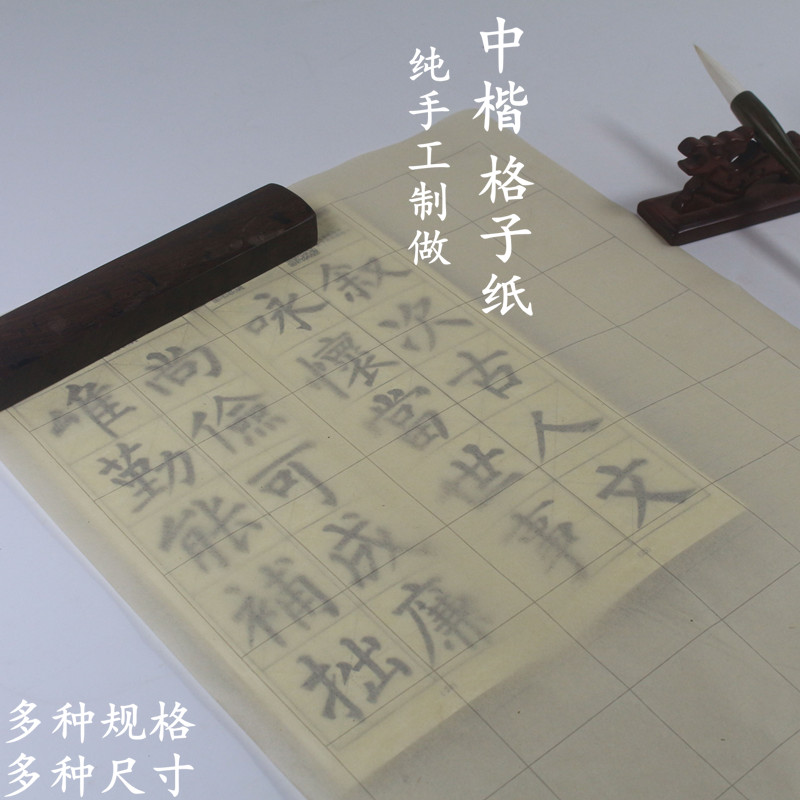 中楷格子纸
纯手工制做
叙次古人文
咏怀当世事
尚儉可成廉
惟勤能補拙
多种规格
多种尺寸